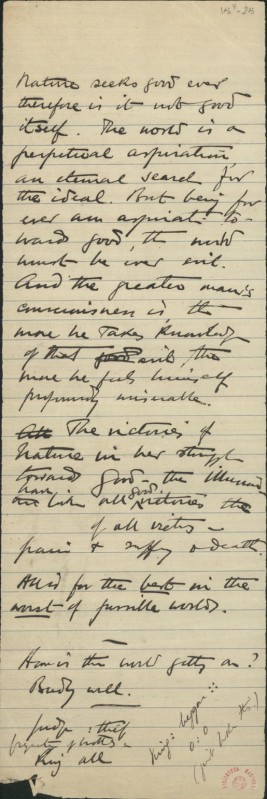 Nature seeks good ever
therefore is it not good
itself. The world is a
perpetual aspiration,
an eternal search for
the ideal. But being for
ever an aspirat: to-
wards good, the world
must be ever evil.
And the greater man's
consciousness is, the
more he takes knowledge
of that good evil, the
more he feels himself
profoundly miserable.
All The victories of
Nature in her struggle
towards Good - the
have like all victories the
of all victors -
pain & suffg & death.
All is for the best in the
worst of possible worlds.
How is the world getting on?
Badly well.
Judge : thief
King all
King : beggar ::
0 : 0